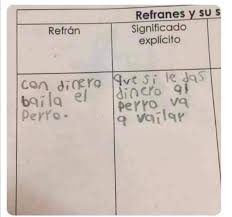 Refranes y su s
Refrán
Significado
explícito
con dinero
baila el
perro.
Que si le das
dinero al
perro va
a vailar